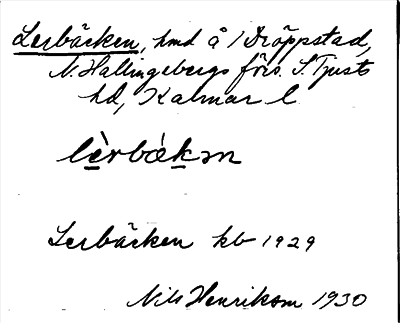 Lerbäcken, hmd å / Dröppstad,
N. Hallingebergs förs. S. Tjusts
hd, Kalmar l.
lèrbákən
Lerbäcken kb 1929
Nils Henrikson 1930